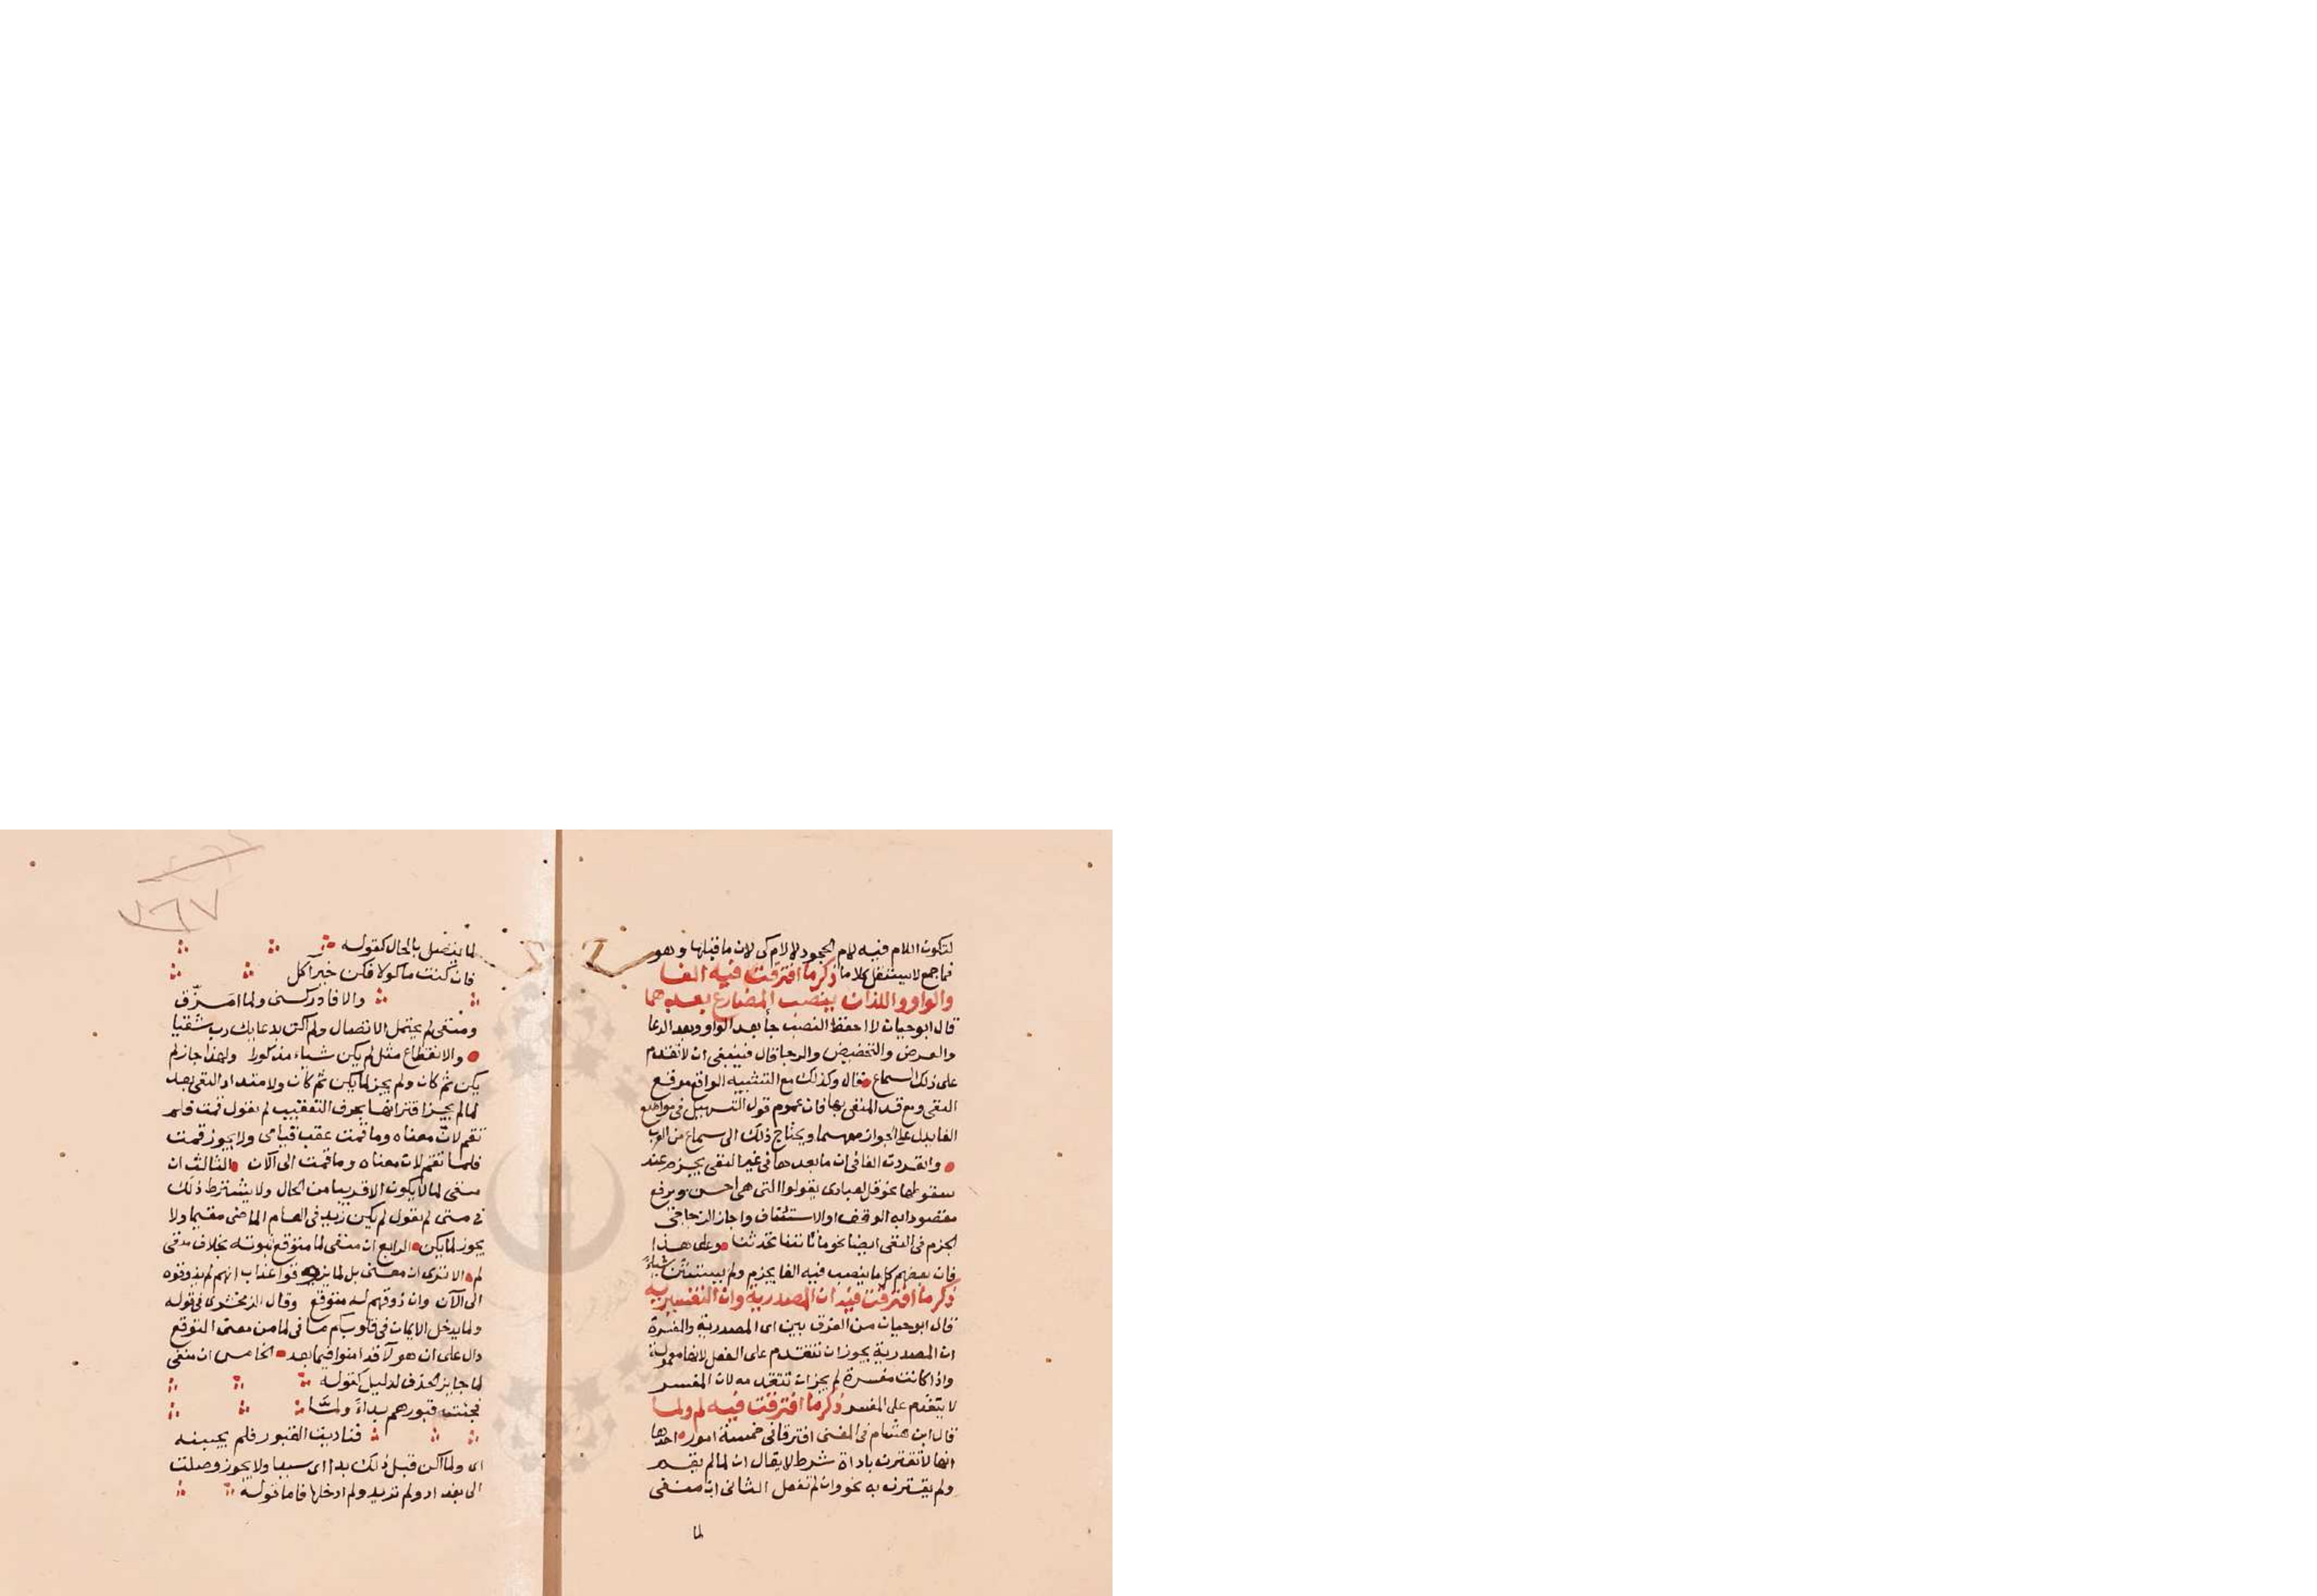 لتكون اللام فيه لام الجحود لا لام كي لان ما قبلها وهو
فما جمع لا يستقل كلاما ذكر ما افترقت فيه الفا
والواو واللذان ينصب المضارع بعدهما
قال ابوحيان لا احفظ النصب جا بعد الواو وبعد الدعا
والعرض والتحضيض والرجا قال فينبغي ان لا نقدم
على ذلك السماع قال وكذلك مع التشبيه الواقع موقع
النفي ومع قد المنفي بها فان عموم قول التسهيل في مواضع
الفا يدل على الجواز معهما ويحتاج ذلك الى سماع من العرب
وانفردت الفا في ان ما بعدها في غير النفي يجزم عند
سقوطها نحو قل لعبادي يقولوا التي هي احسن ويرفع
مقصودا به الوقف او الاستئناف واجاز الزجاجي
الجزم في النفي ايضا نحو ما تاتنا تحدثنا وعلى هذا
فان بعضهم كل ما ينصب فيه الفا يجزم ولم يستثن شيأ
ذكر ما افترقت فيه ان المصدرية وان التفسيرية
قال ابوحيان من الفرق بين اى المصدرية والمفسرة
ان المصدرية يجوز ان تتقدم على الفعل لانها معمولة
واذا كانت مفسرة لم يجز ان تتقدمه لان المفسر
لا يتقدم على المفسر ذكر ما افترقت فيه لم ولما
قال ابن هشام في المغنى افترقا في خمسة امور احدها
انها لا تقترن باداة شرط لا يقال ان لما لم يقم
ولم يقترن به نحو وان لم تفعل الثانى ان منفى
لما
٣٦٧
لما يتصل بالحال كقوله
فان كنت ماكولا فكن خير اكل
والا فادركنى ولما امزق
ومنفى لم يحتمل الاتصال ولم اكن بدعايك رب شقيا
والانقطاع مثل لم يكن شياء مذكورا ولهذا جاز لم
يكن ثم كان ولم يجز لما يكن ثم كان ولامتداد النفى بعد
لما لم يجز اقترانها بحرف التعقيب لم تقول قمت فلم
تقم لان معناه وما قمت عقب قيامى ولا يجوز قمت
فلما تقم لان معناه وما قمت الى آلان الثالث ان
منفى لما لا يكون الا قريبا من الحال ولا يشترط ذلك
في منفى لم تقول لم يكن زيد فى العام الماضى مقيما ولا
يجوز لما يكن الرابع ان منفى لما متوقع ثبوته بخلاف منفى
لم الا ترى ان معنى بل لما يذوقوا عذاب انهم لم يذوقوه
الى آلان وان ذوقهم له متوقع وقال الزمخشرى فى قوله
ولما يدخل الايمان فى قلوبكم ما فى لما من معنى التوقع
دال على ان هولآ قد امنوا فيما بعد الخامس ان منفى
لما جايز الحذف لدليل كقوله
فجئت قبورهم بداءً ولمّا
فناديت القبور فلم يجبنه
اى ولما اكن قبل ذلك بدا اى سيدا ولا يجوز وصلت
الى بغداد ولم تريد ولم ادخلها فاما قوله